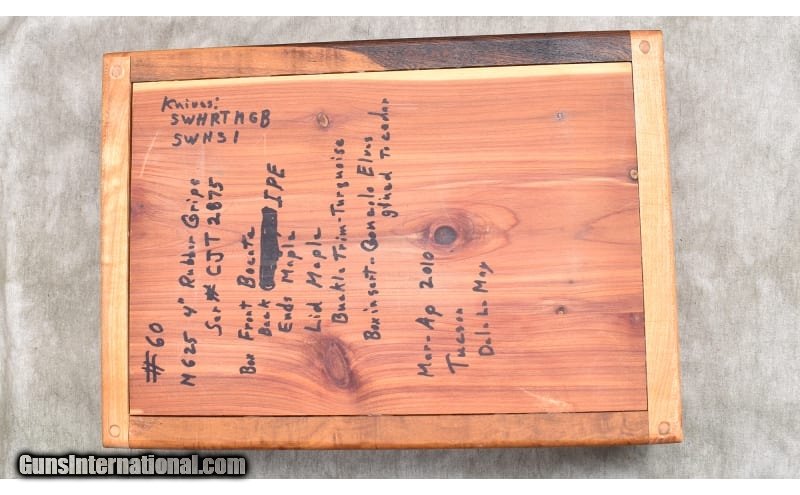 Knives:
SWHRTMGB
SWHS1
#60
M625 4" Rubber Grips
Ser# CJT 2875
Box Front Bocote
Back IPE
Ends Maple
Lid Maple
Buckle Trim-Turquoise
Box insert-Gonzolo Elves
glued to cedar
Mar-Ap 2010
Tucson
GunsInternational.com